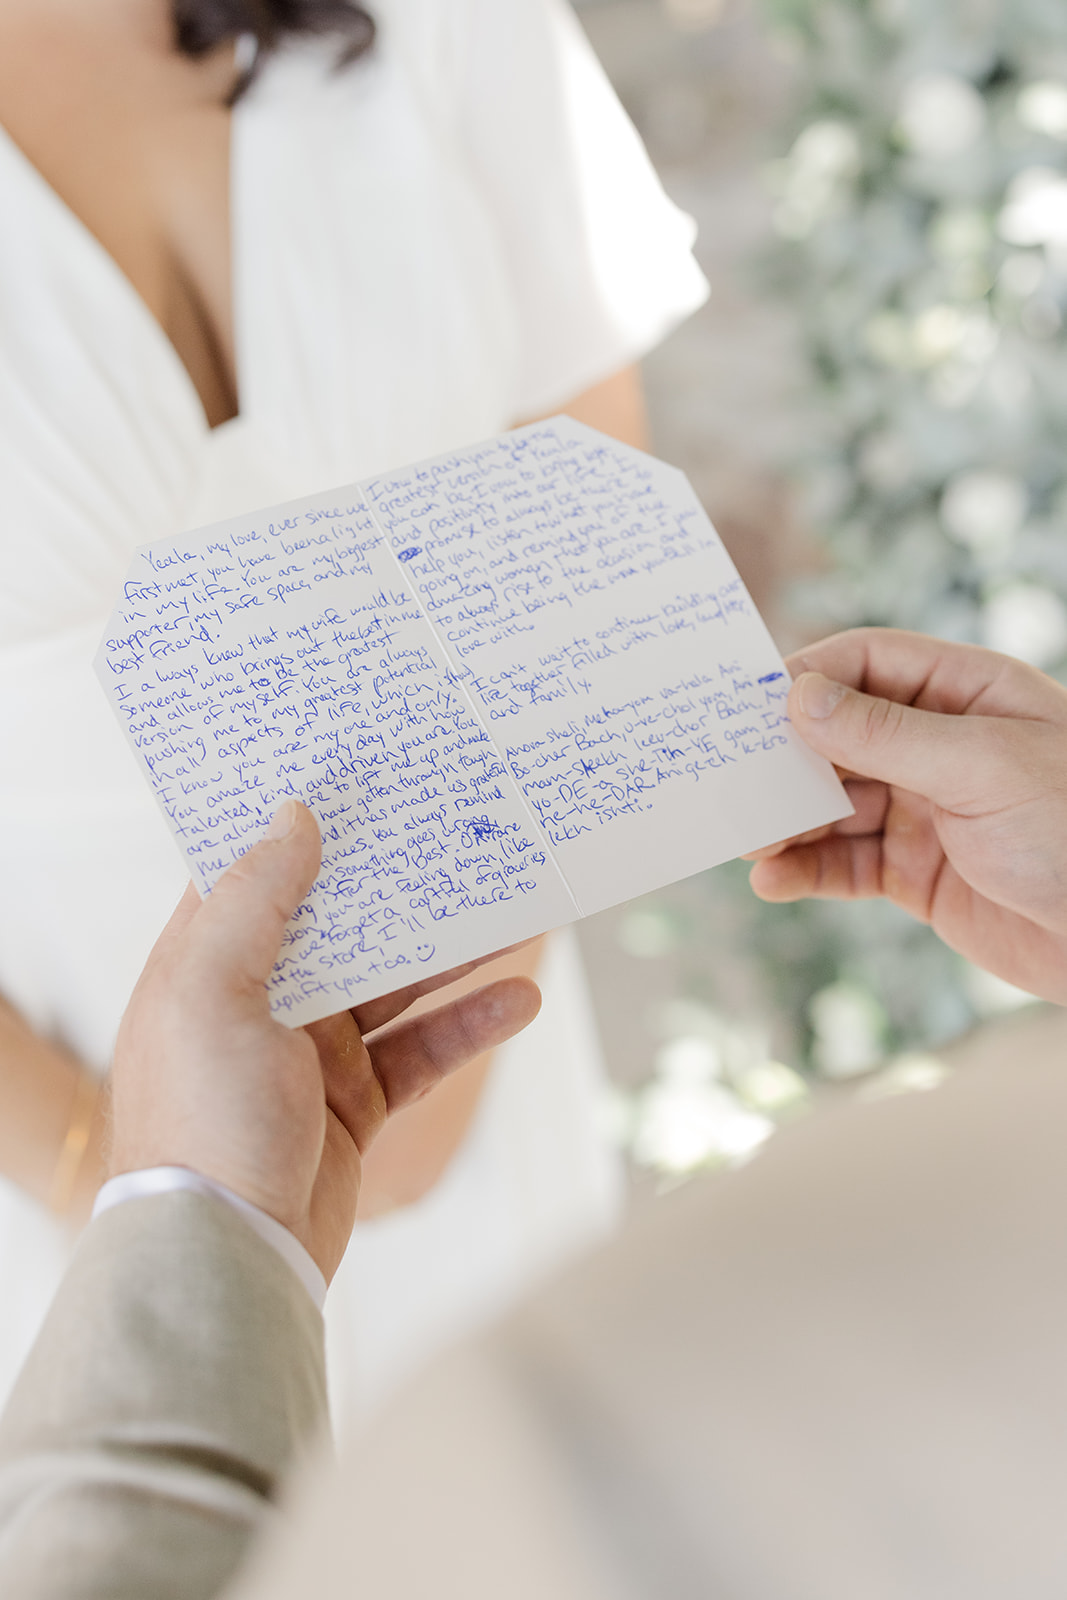 Yeala, my love, ever since we
first met, you have been a light
in my life. You are my biggest
supporter, my safe space, and my
best friend.
I always knew that my wife would be
someone who brings out the best in me
and allows me to be the greatest
version of myself. You are always
pushing me to my greatest potential
in all aspects of life, which is how
I know you are my one and only.
You amaze me every day with how
talented, kind, and driven you are. You
are always here to lift me up and make
me have gotten through tough
and it has made us grateful
You always remind
when something goes wrong,
is for the Best. On rare
you are feeling down, like
when we forget a cartful of groceries
at the store, I'll be there to
uplift you too. :)
I vow to push you to be the
greatest version of Yeala
you can be. I vow to bring light
and positivity into our life. I
promise to always be there to
help you, listen to what you have
going on, and remind you of the
amazing woman that you are. I vow
to always rise to the occasion and
continue being the man you fell in
love with.
I can't wait to continue building our
life together filled with love, laughter,
and family.
Ahova sheli, Meha-yom va-hala Ani
Bo-cher Bach, u-ve-chol yom, Ani
mam-sheekh leev-chor Bach. Ani
yo-DE-a she-Tih-YE gam Im
ne-he-DAR. Ani ge-eh li-kro
lekh ishti.